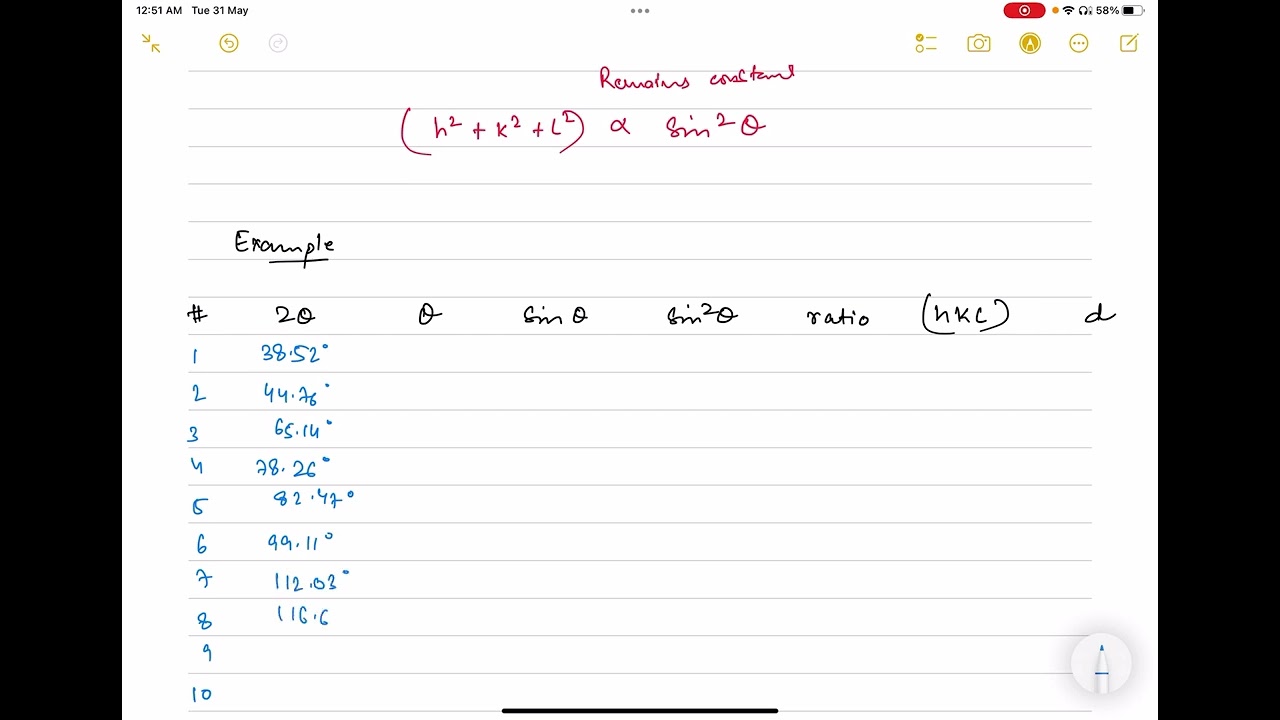 12:51 AM Tue 31 May 58%
Remains constant
(h² + k² + l²) ∝ sin²θ
Example
# 2θ θ sin θ sin²θ ratio (hkl) d
1 38.52°
2 44.76°
3 65.14°
4 78.26°
5 82.47°
6 99.11°
7 112.03°
8 116.6
9
10